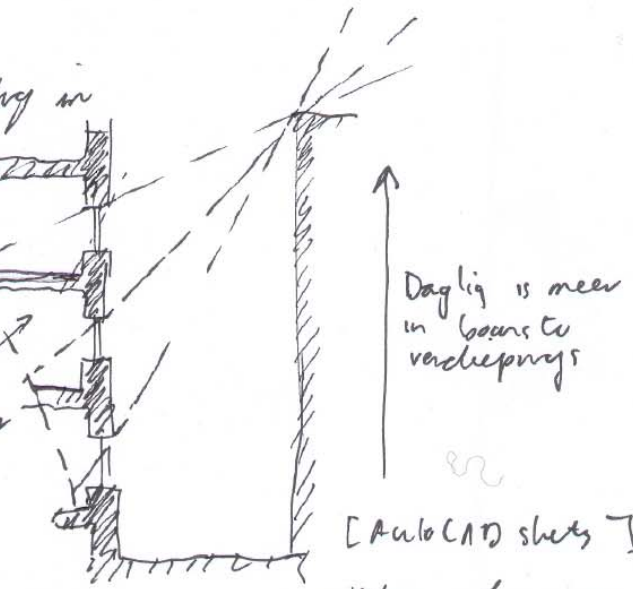 in
Daglig is meer
in boonste
verdiepings
[AutoCAD skets]